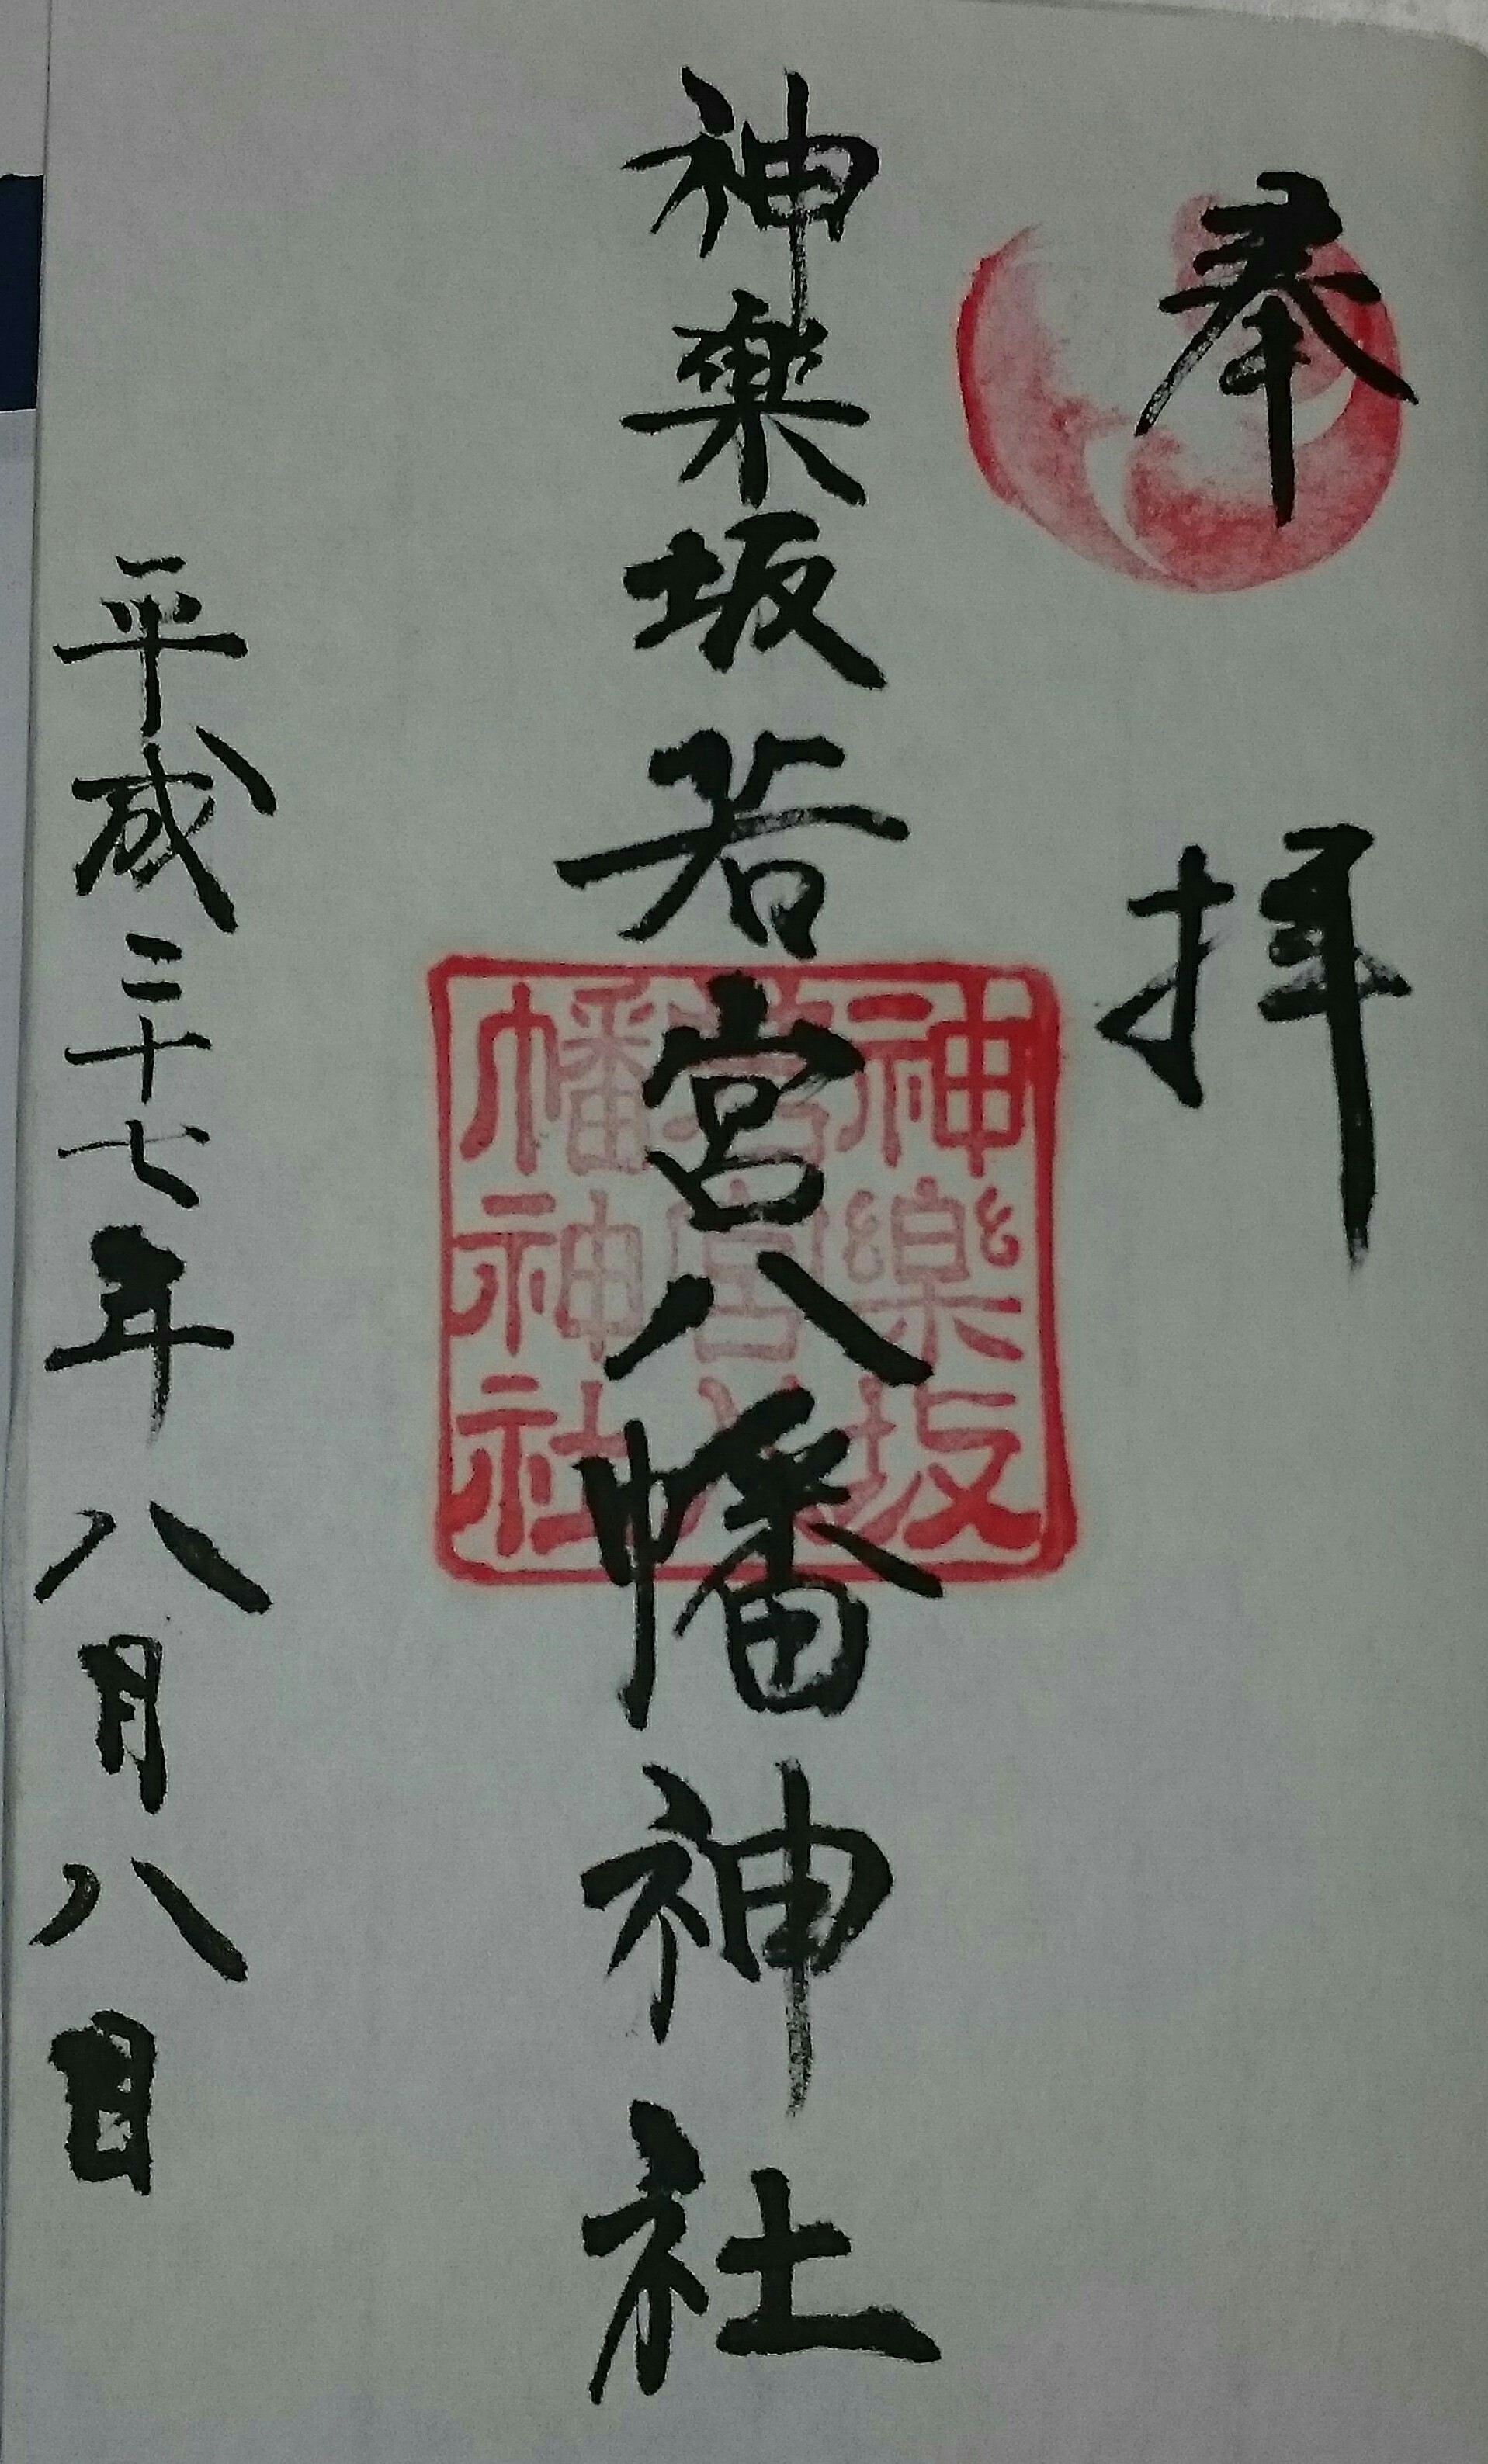 奉拝
神楽坂若宮八幡神社
神樂坂
若宮八
幡神社
平成二十七年八月八日